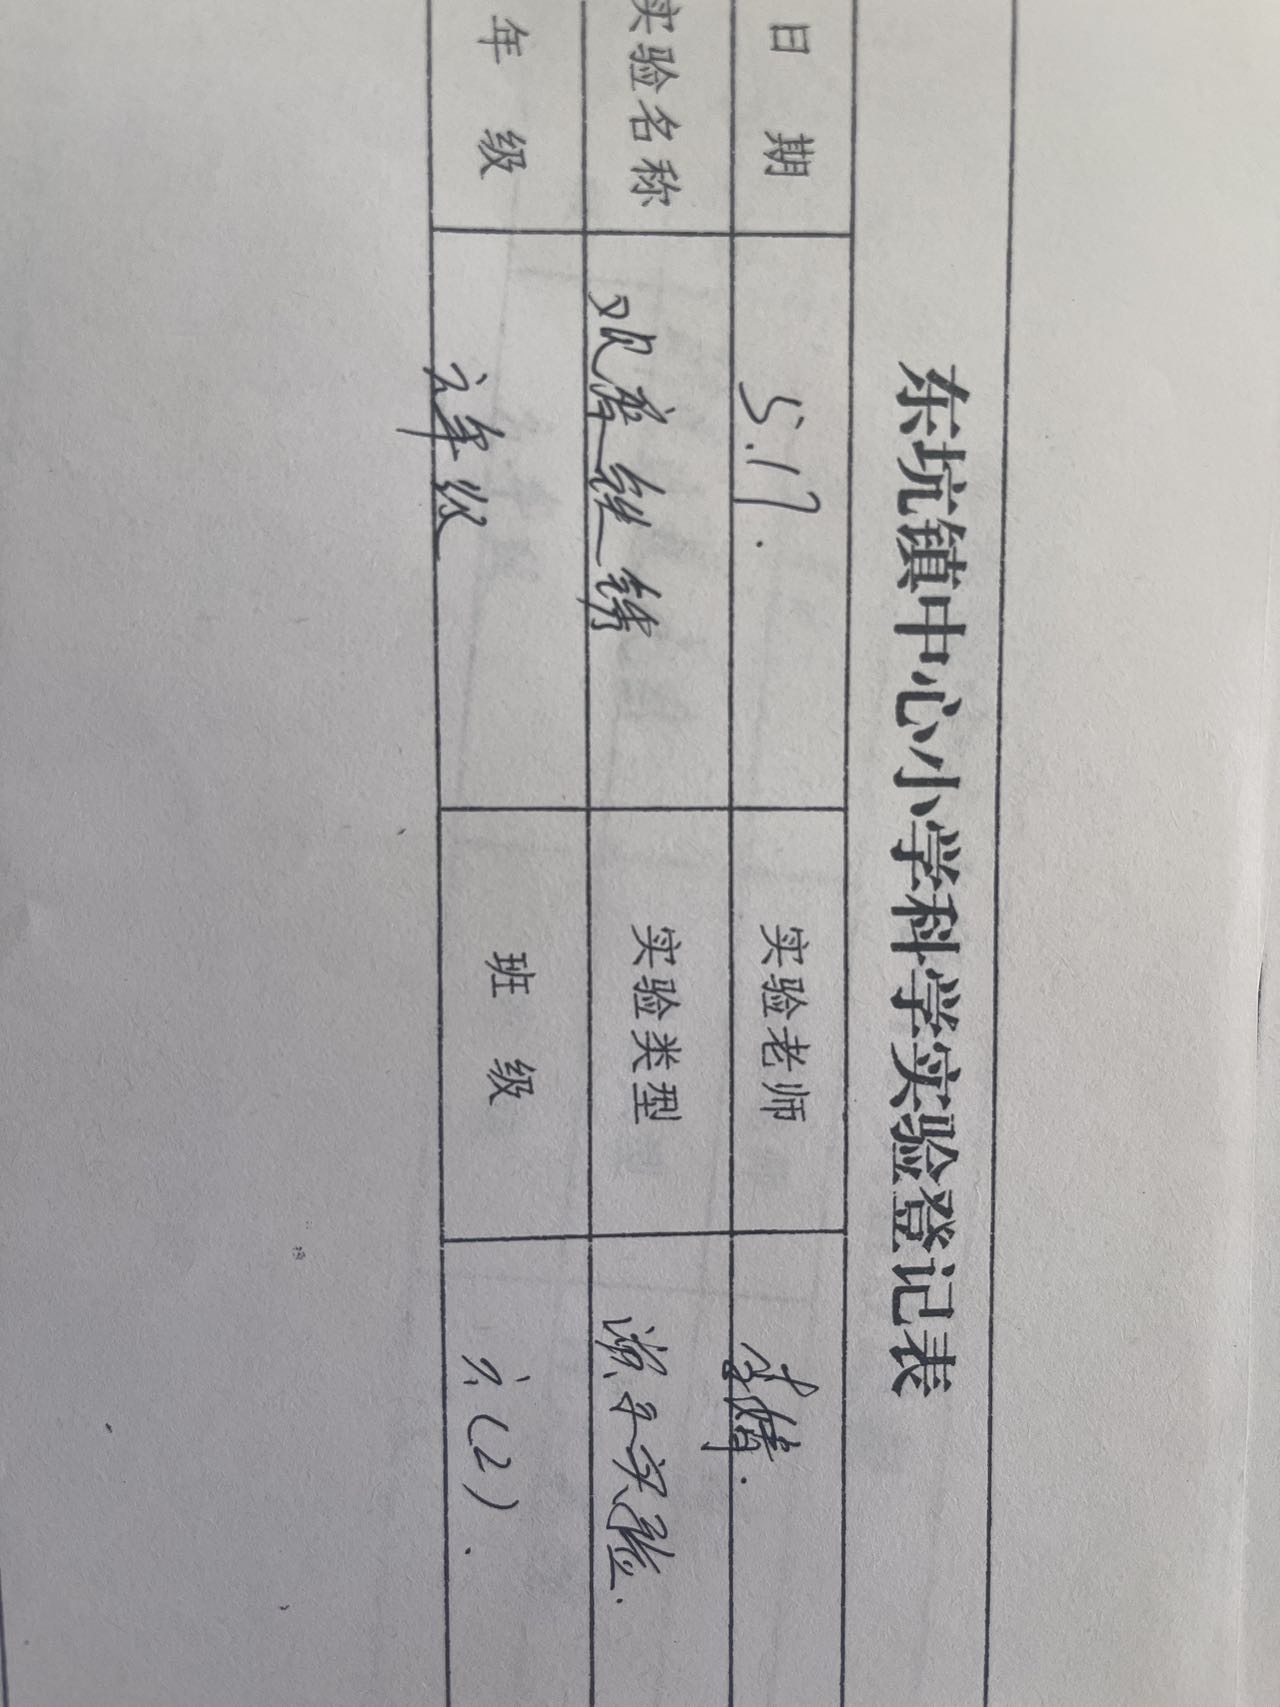 东坑镇中心小学科学实验登记表
日 期 5.17. 实验老师
实验名称 观察铁锈 实验类型 演示实验.
年 级 六年级 班 级 六(2).